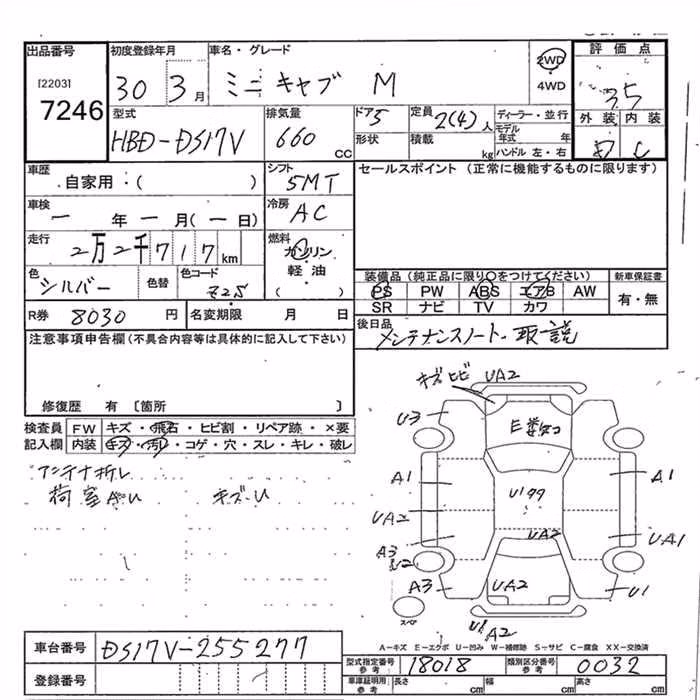 出品番号 初度登録年月 車名・グレード 評価点
[2203]
7246
30 3月 ミニキャブ M 2WD 4WD 3.5
型式 排気量 ドア 定員 ディーラー・並行 外装 内装
HBD-DS17V 660 CC 5 2(4)人 モデル年式 年
形状 積載 kg ハンドル 左・右 D C
車歴 シフト セールスポイント (正常に機能するものに限ります)
自家用・( ) 5MT
車検 冷房
一 年 一 月 (一 日) AC
走行 燃料
2万2千717km ガソリン
軽油
( )
色 色替 色コード 装備品 (純正品に限り○をつけてください) 新車保証書
シルバー Z25 PS PW ABS エアB AW 有・無
SR ナビ TV カワ
R券 8030 円 名変期限 月 日 後日品
メンテナンスノート・取説
注意事項申告欄 (不具合内容等は具体的に記入して下さい)
修復歴 有 〔箇所 〕
検査員 FW キズ・飛石・ヒビ割・リペア跡・×要
記入欄 内装 キズ・汚レ・コゲ・穴・スレ・キレ・破レ
アンテナ折レ
荷室AU キズ・U
キズヒビ UA2
U3
A1 U199 A1
UA2 UA2 UA1
A3 U2
A3 UA2 U1
スペア
U1 A2
A-キズ E-エクボ U-凹み W-補修跡 S-サビ C-腐食 XX-交換済
車台番号 DS17V-255277
型式指定番号 参考 18018 類別区分番号 参考 0032
登録番号 車庫証明用 参考 長さ cm 幅 cm 高さ cm